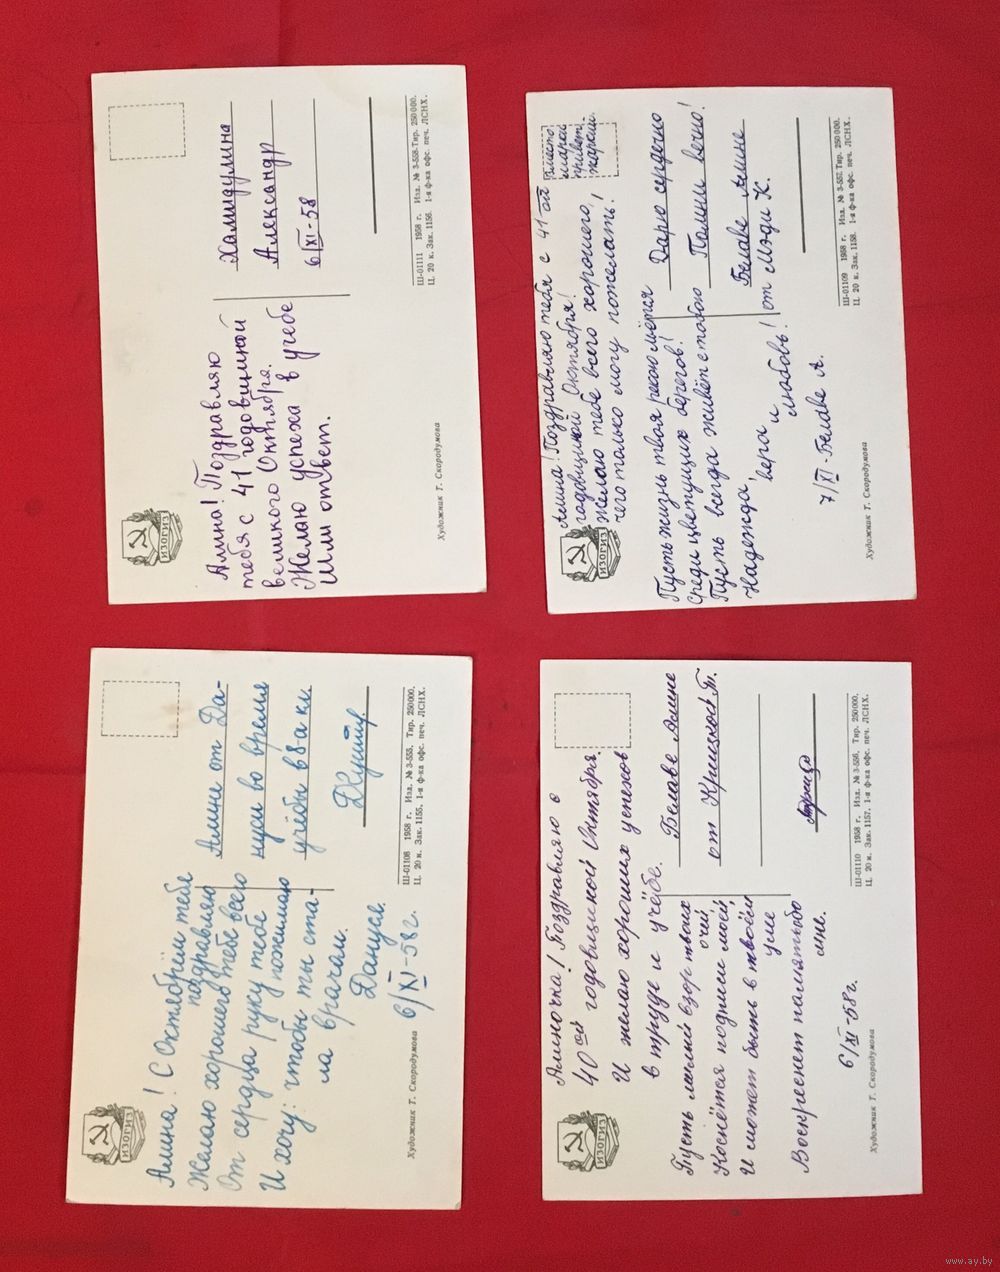 ИЗОГИЗ
Амина! Поздравляю
тебя с 41 годовщиной
великого Октября.
Желаю успеха в учебе
Шли ответ.
Художник Т. Скородумова
Хамидулина
Александр
6/XI-58
Ш-01111 1958 г. Изд. № 3-558. Тир. 250000.
Ц. 20 к. Зак. 1156. 1-я ф-ка офс. печ. ЛСНХ.
ИЗОГИЗ
Амина! Поздравляю тебя с 41-ой
годовщиной Октября!
Желаю тебе всего хорошего,
чего только могу пожелать!
Пусть жизнь твоя рекою льётся
Среди цветущих берегов!
Пусть всегда живёт с тобою
Надежда,
вера и
любовь!
7/XI- Белаве А.
Художник Т. Скородумова
Вместо
марки
привет
жаркий.
Дарю сердечно
Помни вечно!
Белаве Амине
от Мэди К.
Ш-01109 1958 г. Изд. № 3-557. Тир. 250000.
Ц. 20 к. Зак. 1158. 1-я ф-ка офс. печ. ЛСНХ.
ИЗОГИЗ
Амина! С Октябрём тебя
поздравляю
Желаю хорошего тебе всего
От сердца руку тебе пожимаю
И хочу: чтобы ты ста-
ла врачом.
Дануся.
6/XI-58г.
Художник Т. Скородумова
Амине от Да-
нуси во время
учёбы в 8-а кл.
Ш-01108 1958 г. Изд. № 3-555. Тир. 250000.
Ц. 20 к. Зак. 1155. 1-я ф-ка офс. печ. ЛСНХ.
ИЗОГИЗ
Аминочка! Поздравляю с
40ой годовщиной Октября.
И желаю хороших успехов
в труде и учёбе.
Пусть милый взор твоих
очей
Коснётся подписи моей,
И может быть в твоём
уме
Воскреснет память обо
мне.
6/XI-58г.
Художник Т. Скородумова
Белаве Амине
от
Ш-01110 1958 г. Изд. № 3-556. Тир. 250000.
Ц. 20 к. Зак. 1157. 1-я ф-ка офс. печ. ЛСНХ.
www.ay.by